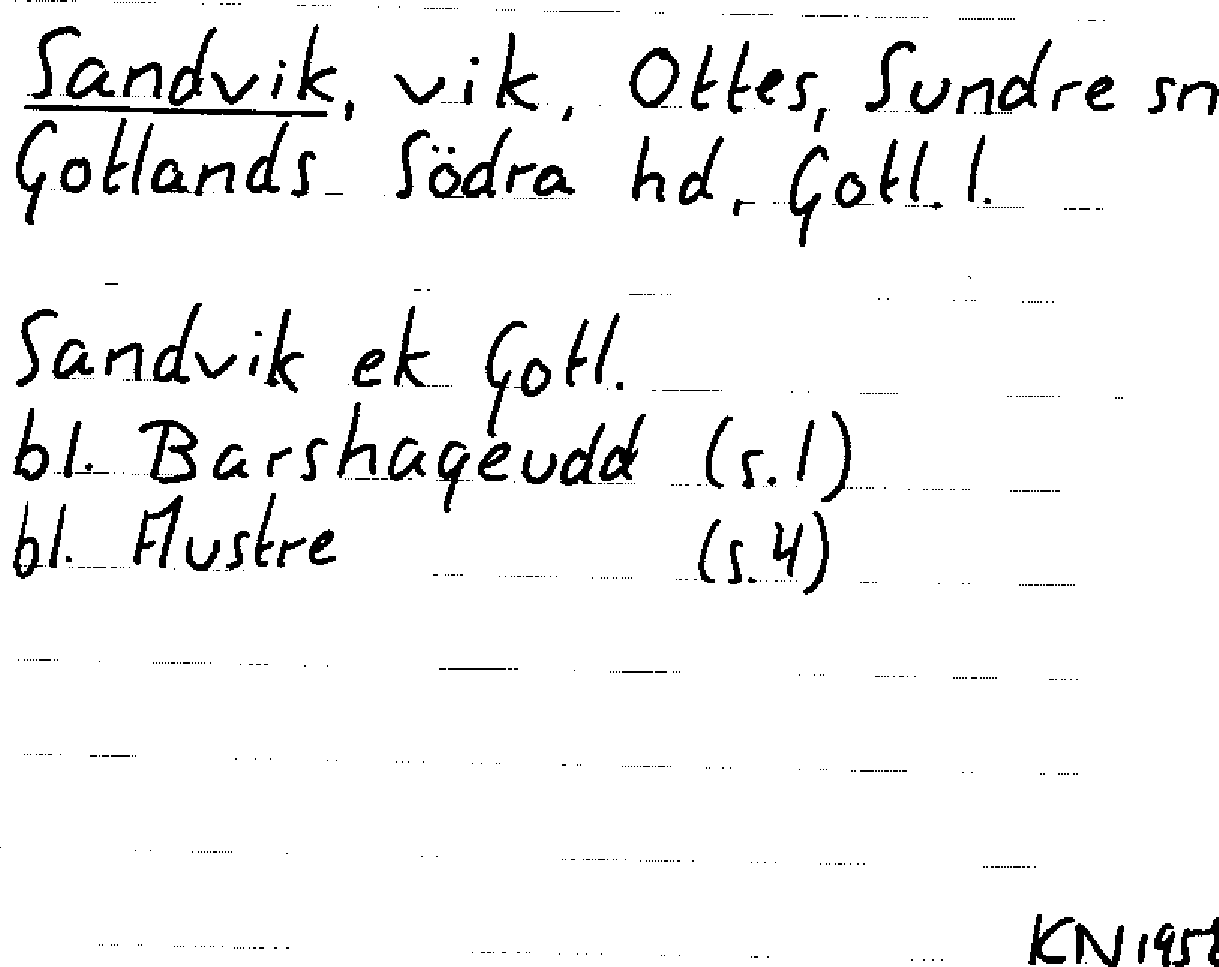 Sandvik, vik, Ottes, Sundre sn
Gotlands Södra hd, Gotl. l.
Sandvik ek Gotl.
bl. Barshageudd (s. 1)
bl. Austre (s. 4)
KN